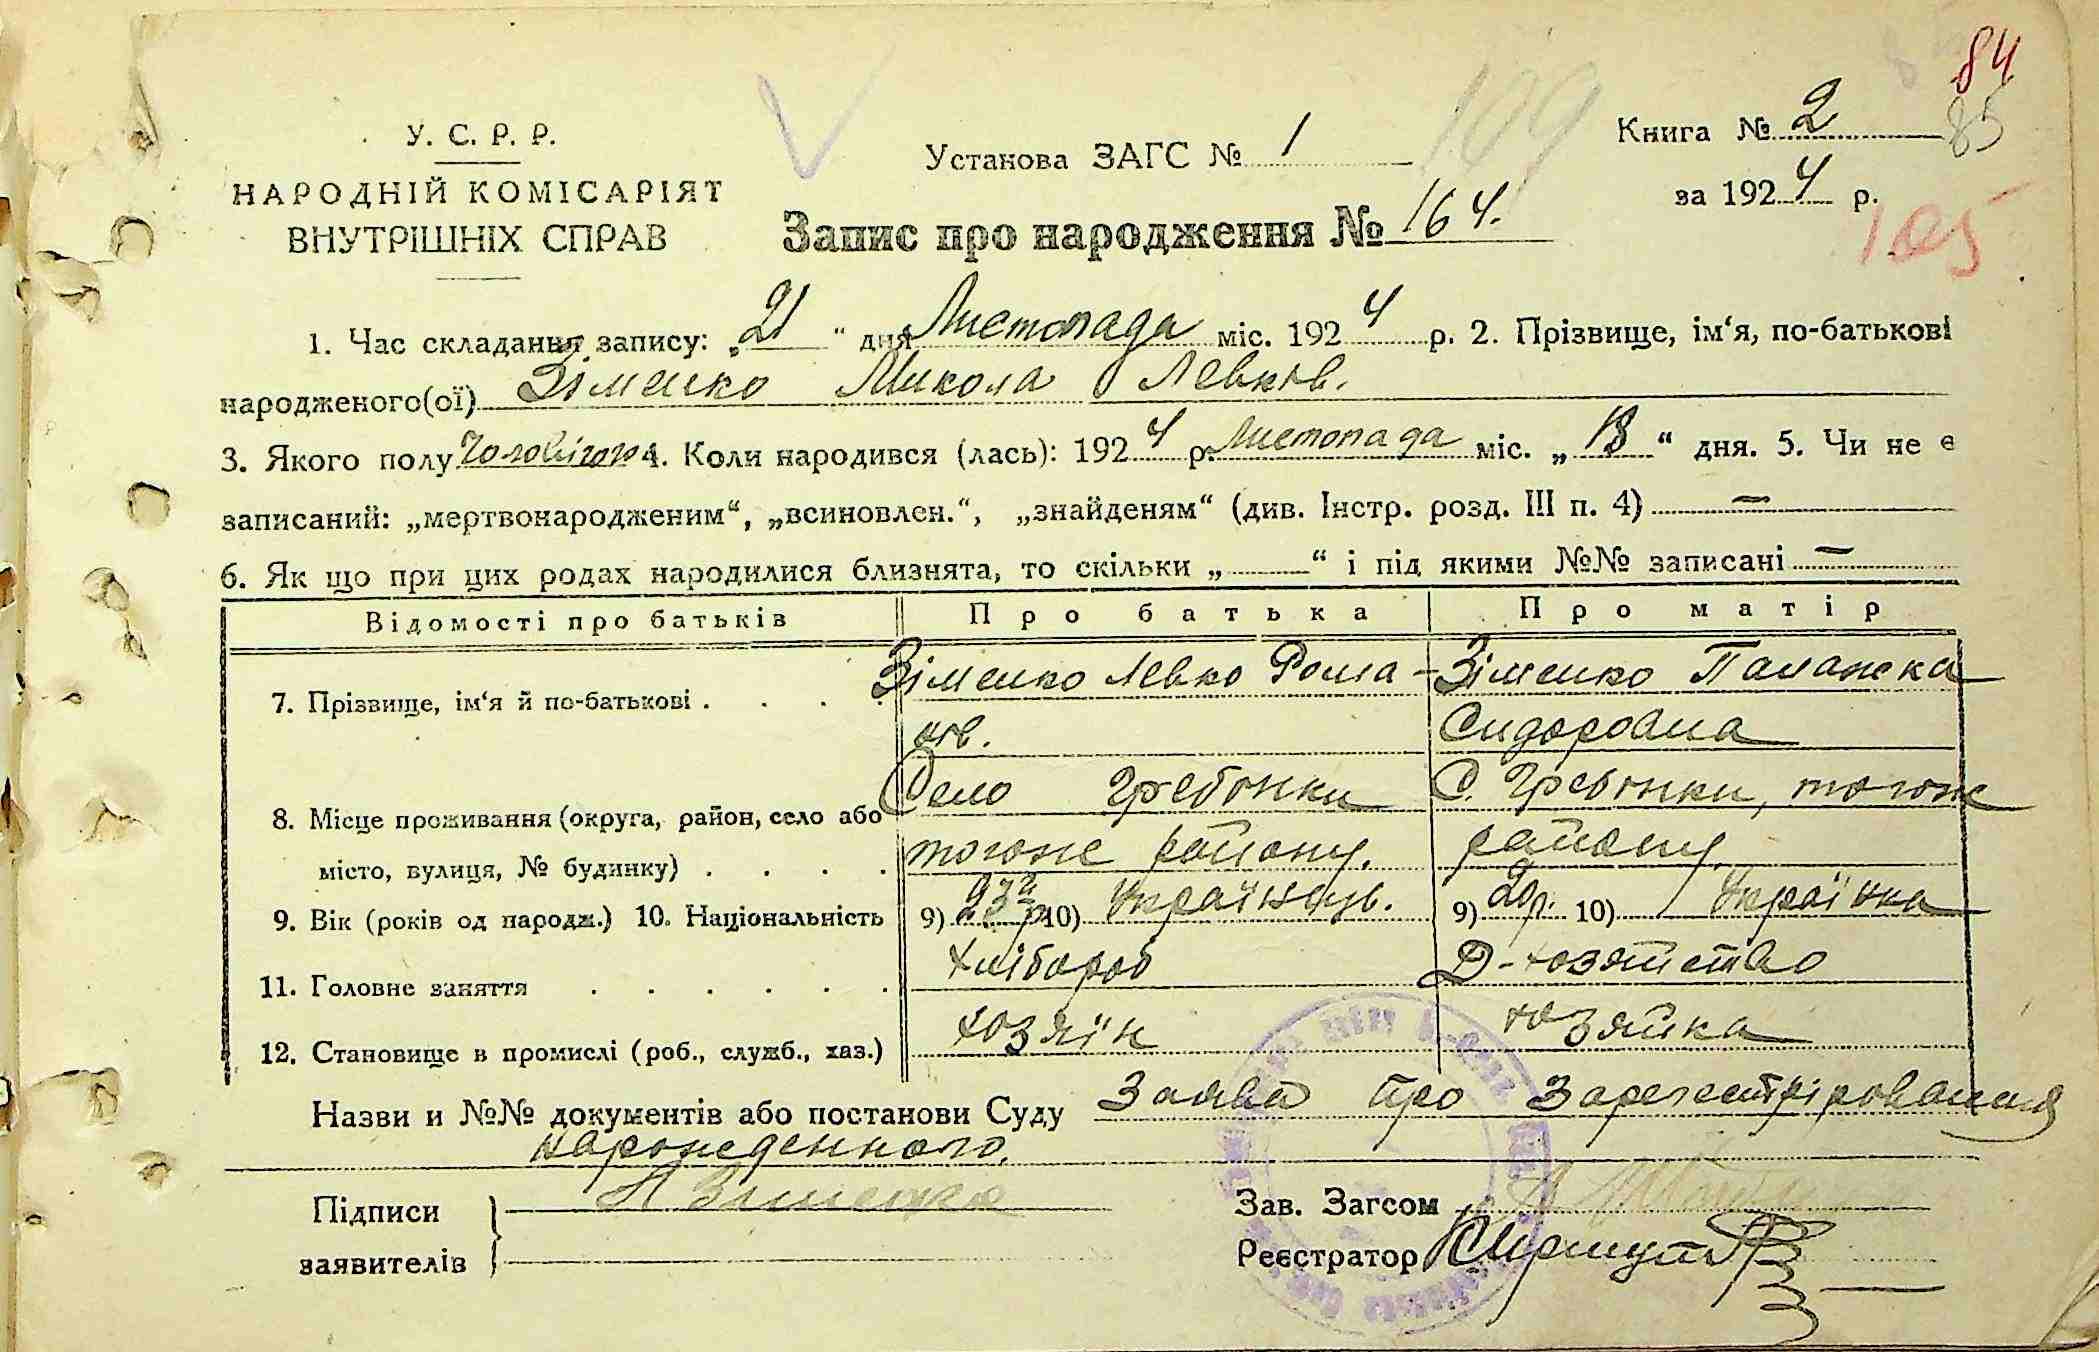 84
85
У. С. Р. Р.
НАРОДНІЙ КОМІСАРІЯТ
ВНУТРІШНІХ СПРАВ
Установа ЗАГС № 1
109
Книга № 2
за 1924 р.
105
Запис про народження № 164.
1. Час складання запису: „21“ дня Листопада міс. 1924 р. 2. Прізвище, ім‘я, по-батькові
народженого(ої) Зіменко Микола Левків.
3. Якого полу чоловічого 4. Коли народився (лась): 1924 р. Листопада міс. „13“ дня. 5. Чи не є
записаний: „мертвонародженим“, „всиновлен.“, „знайденям“ (див. Інстр. розд. III п. 4) —
6. Як що при цих родах народилися близнята, то скільки „ “ і під якими №№ записані —
Відомості про батьків Про батька Про матір
7. Прізвище, ім‘я й по-батькові . . . . Зіменко Левко Рома- Зіменко Палажка
нів. Сидоровна
8. Місце проживання (округа, район, село або Село Гребонки С. Гребонки, тогож
місто, вулиця, № будинку) . . . . тогоже району. району.
9. Вік (років од народж.) 10. Національність 9) 23 р. 10) Українець. 9) 20 р. 10) Українка
11. Головне заняття . . . . . . Хлібороб Д-хозяйство
12. Становище в промислі (роб., служб., хаз.) хозяїн хозяйка
Назви и №№ документів або постанови Суду Заява про зарегестрірования
нарожденного.
Підписи Зименко Зав. Загсом
заявителів Реєстратор